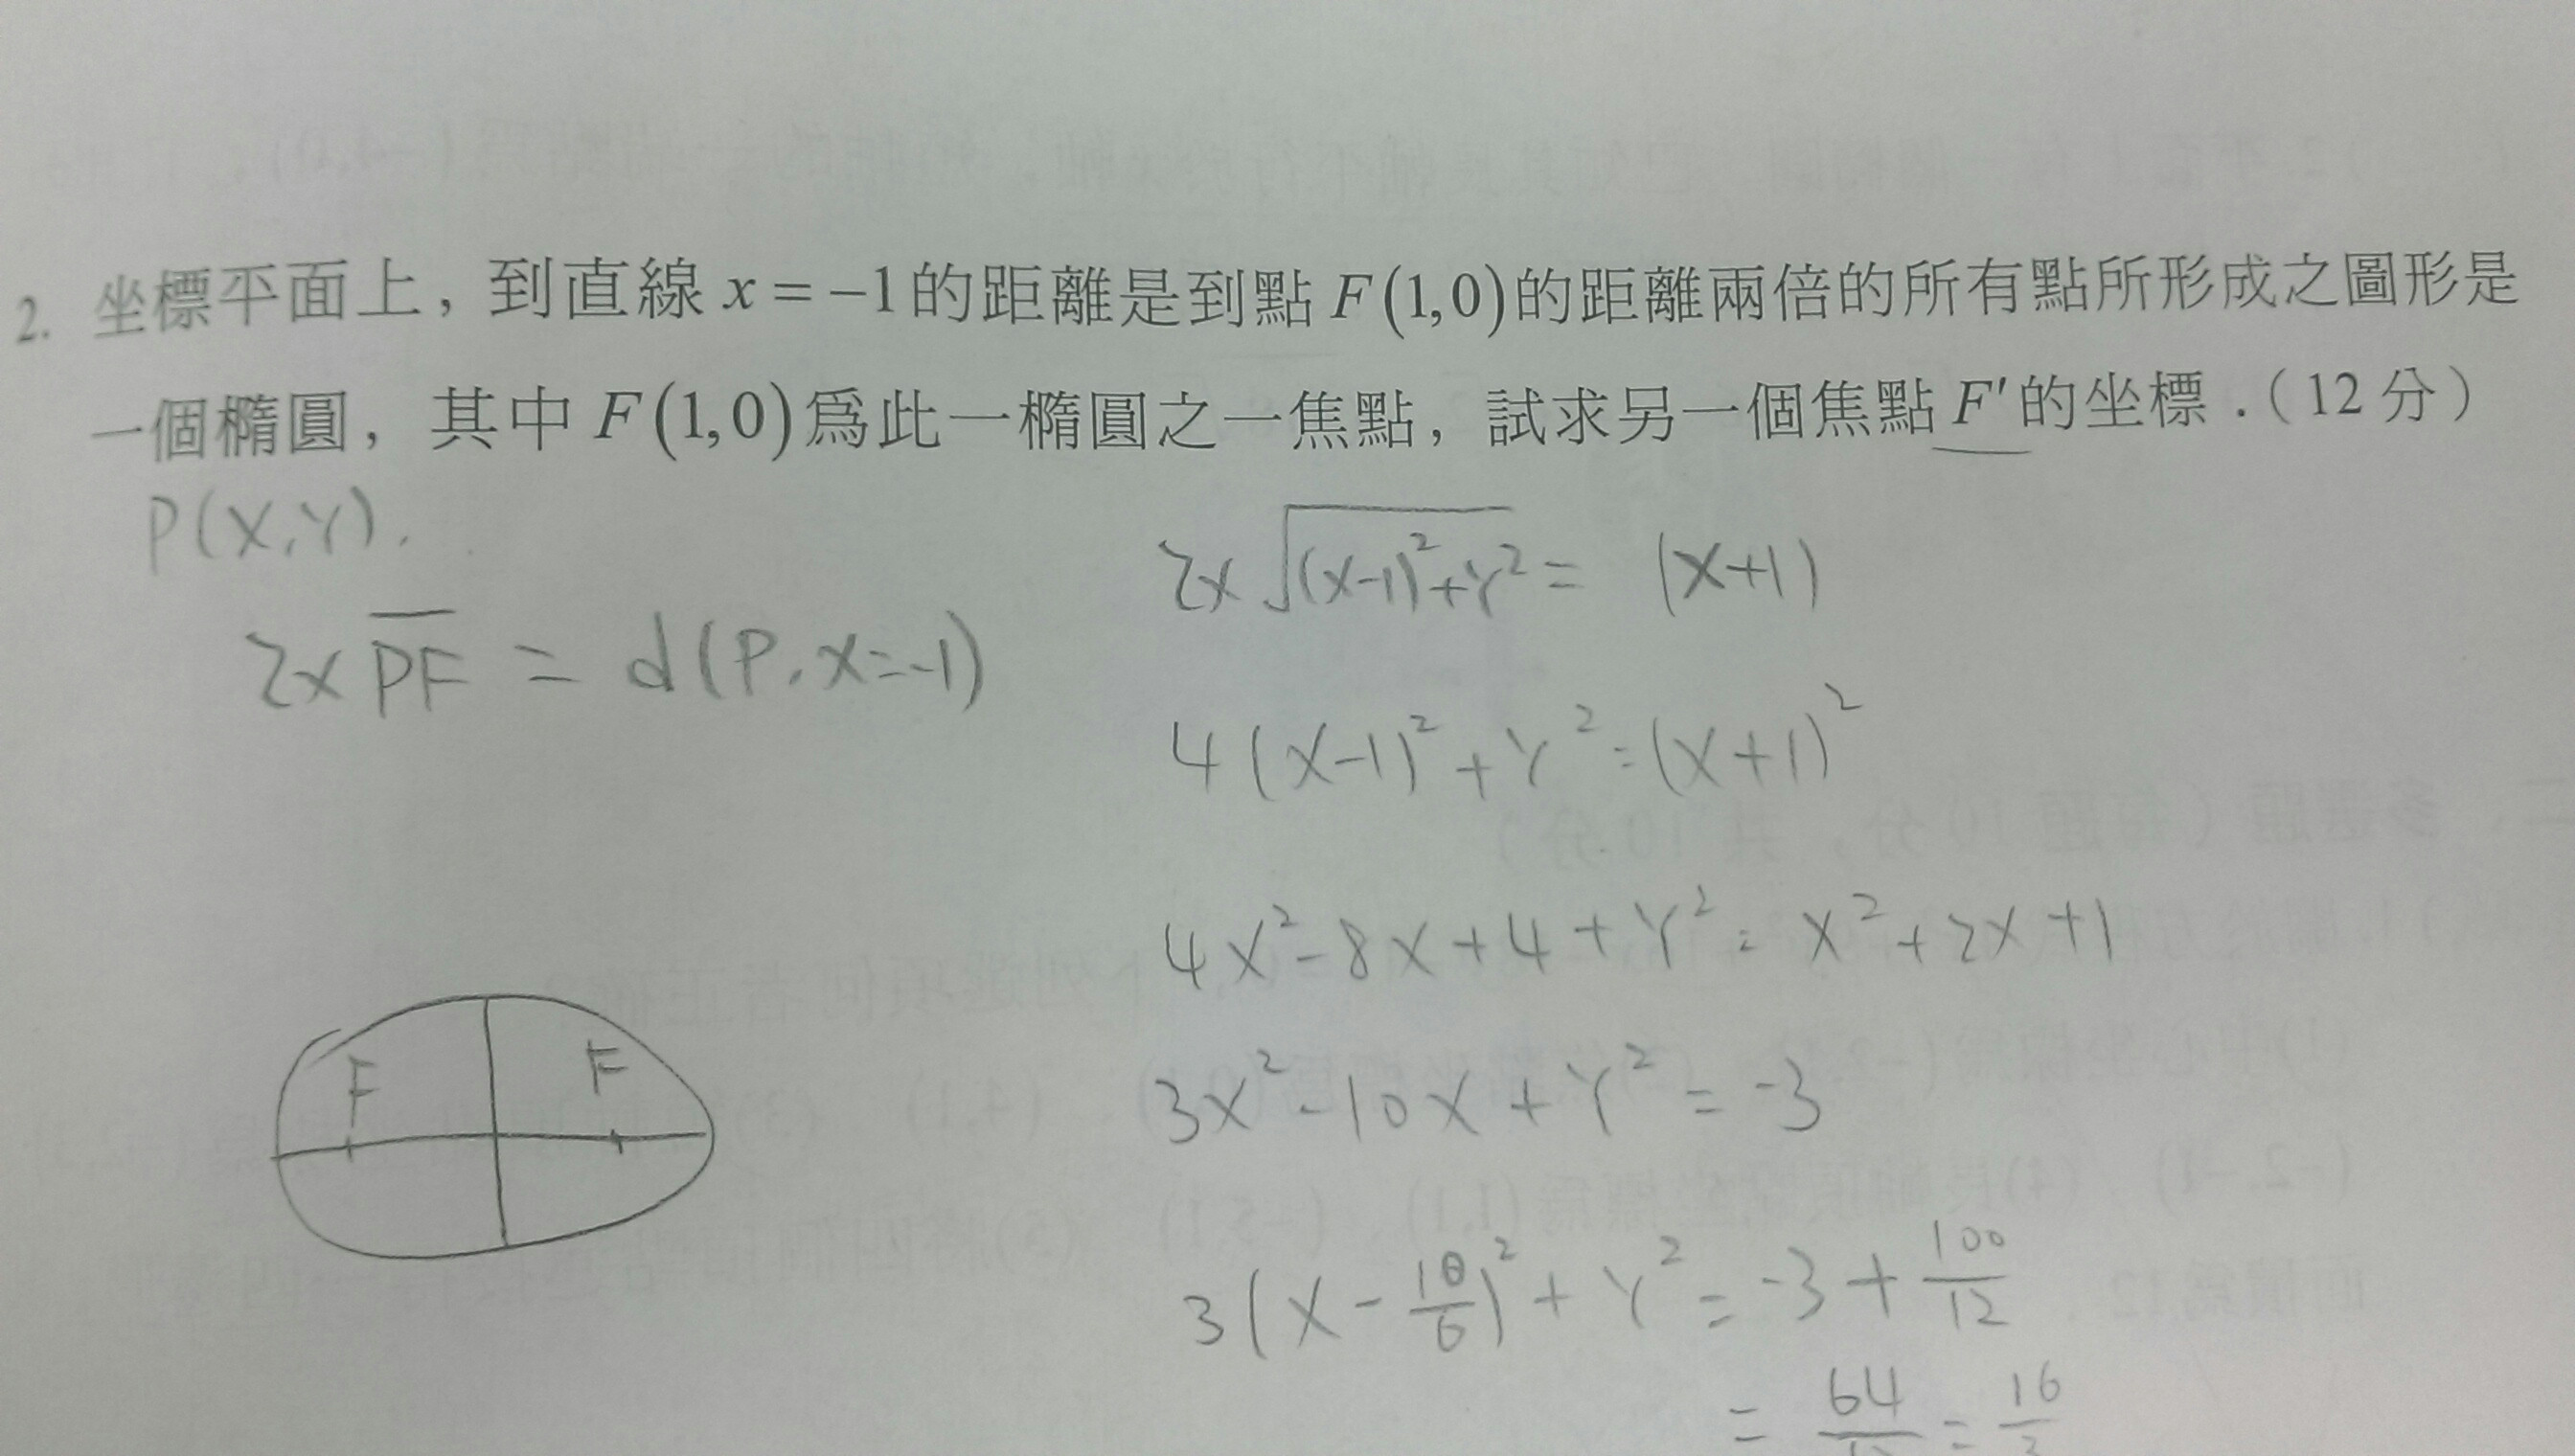 2. 坐標平面上，到直線 x = −1 的距離是到點 F(1,0) 的距離兩倍的所有點所形成之圖形是
一個橢圓，其中 F(1,0) 爲此一橢圓之一焦點，試求另一個焦點 F′ 的坐標．（12 分）
P(X,Y).
2x PF̅ = d(P, x=-1)
2x √((x-1)²+Y²) = (X+1)
4(X-1)²+Y²=(X+1)²
4X²-8X+4+Y²=X²+2X+1
3X²-10X+Y²=-3
3(X-10/6)²+Y²=-3+100/12
F F
= 64/12 = 16/3